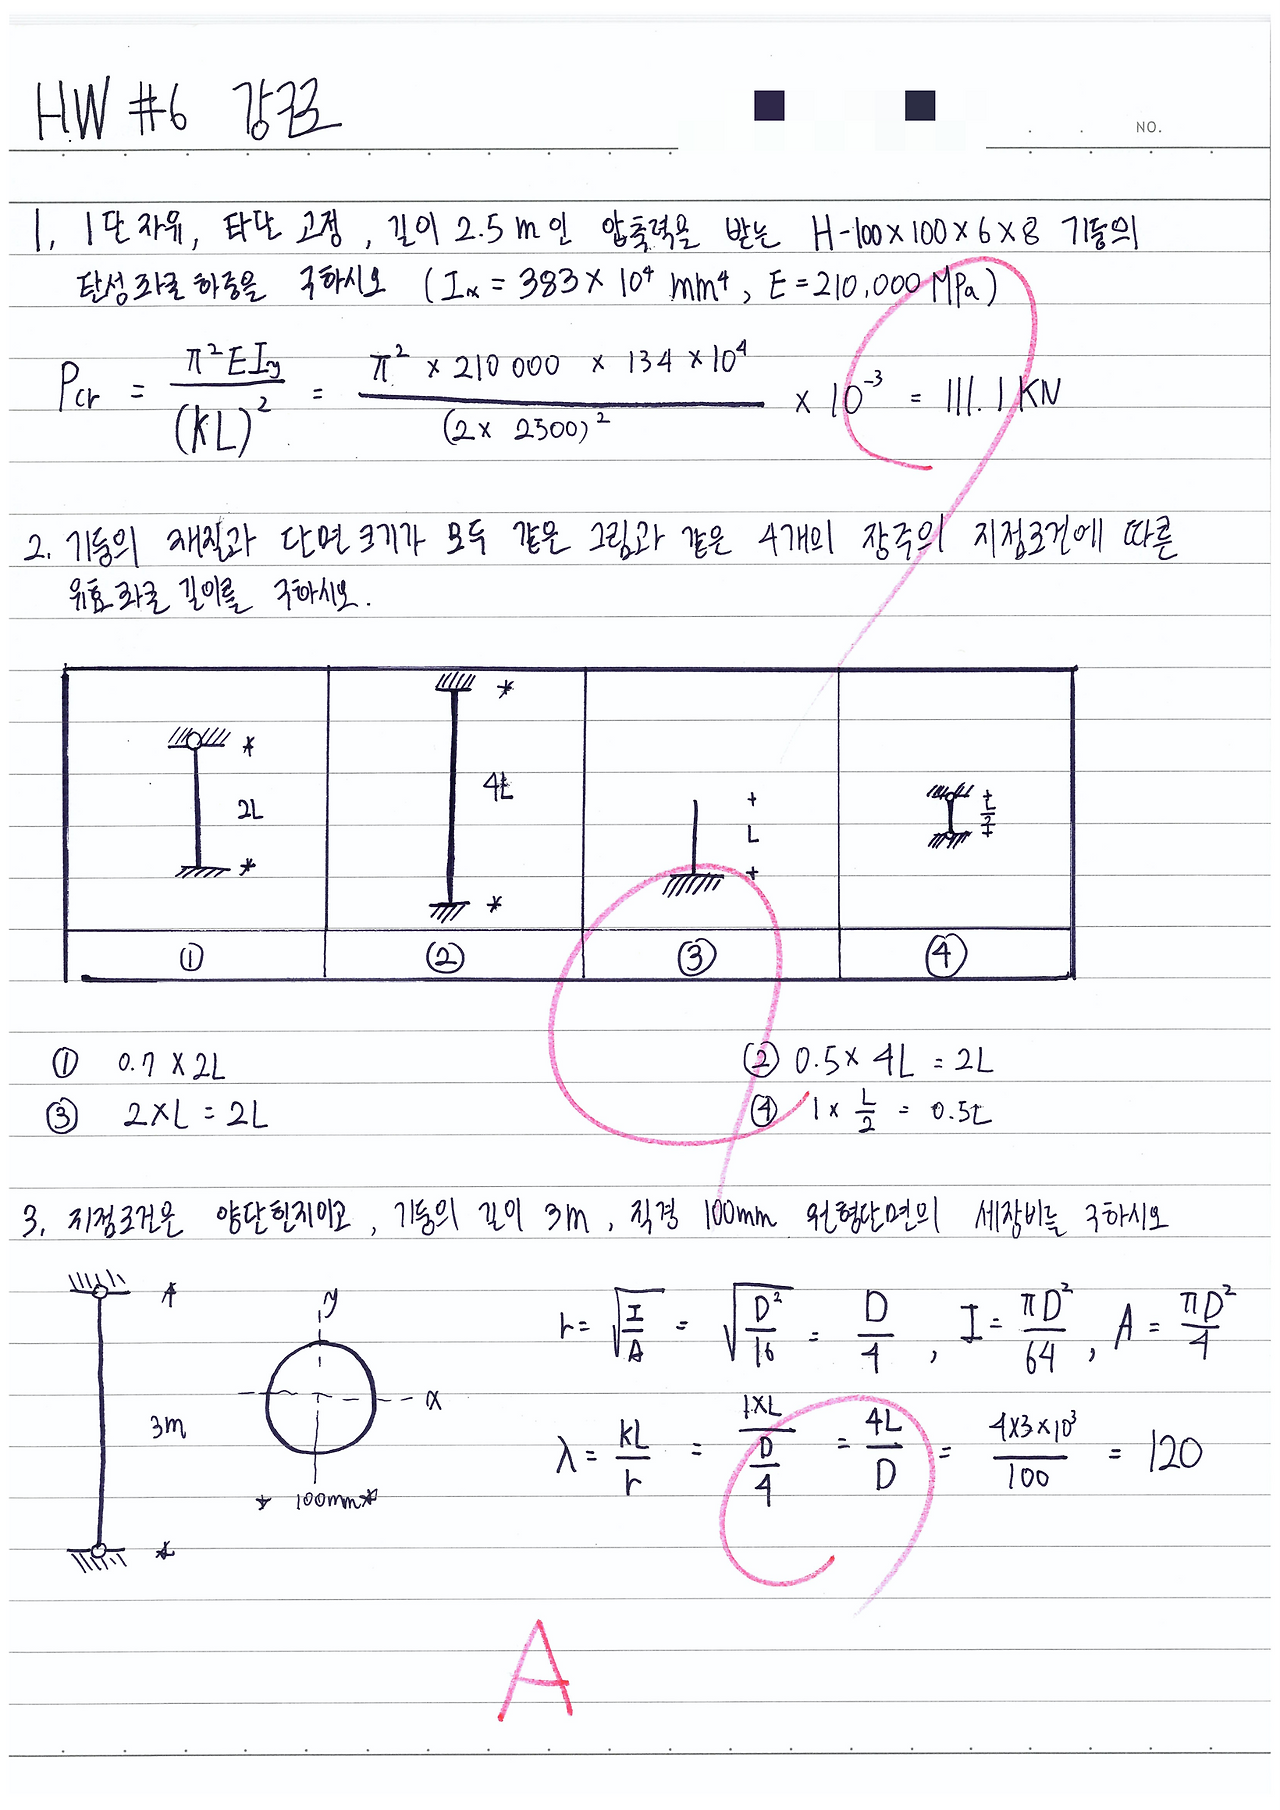 HW #6 강구조
NO.
1. 1단 자유, 타단 고정, 길이 2.5m인 압축력을 받는 H-100×100×6×8 기둥의
탄성좌굴하중을 구하시오 (Ix = 383×10⁴ mm⁴, E=210,000 MPa)
Pcr = π²EIy/(KL)² = π² × 210 000 × 134 ×10⁴/(2× 2500)² × 10⁻³ = 111.1 KN
2. 기둥의 재질과 단면크기가 모두 같은 그림과 같은 4개의 장주의 지점조건에 따른
유효좌굴길이를 구하시오.
2L 4L L L/2
① ② ③ ④
① 0.7 ×2L ② 0.5× 4L = 2L
③ 2×L = 2L ④ 1× L/2 = 0.5L
3. 지점조건은 양단힌지이고, 기둥의 길이 3m, 직경 100mm 원형단면의 세장비를 구하시오
3m
y
x
100mm
r = √(I/A) = √(D²/16) = D/4, I = πD²/64, A = πD²/4
λ = KL/r = 1×L/(D/4) = 4L/D = 4×3×10³/100 = 120
A